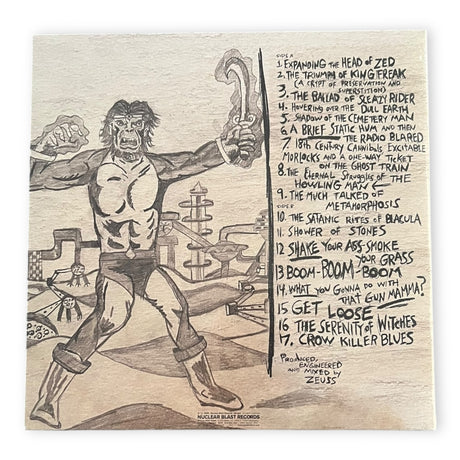 SIDE A
1. EXPANDING THE HEAD OF ZED
2. THE TRIUMPH OF KING FREAK
(A CRYPT OF PRESERVATION AND
SUPERSTITION)
3. THE BALLAD OF SLEAZY RIDER
4. HOVERING OVER THE DULL EARTH
5. SHADOW OF THE CEMETERY MAN
6. A BRIEF STATIC HUM AND THEN
THE RADIO BLARED
7. 18th CENTURY CANNIBALS EXCITABLE
MORLOCKS AND A ONE-WAY TICKET
ON THE GHOST TRAIN
8. THE ETERNAL STRUGGLES OF THE
HOWLING MAN
9. THE MUCH TALKED OF
METAMORPHOSIS
SIDE B
10. THE SATANIC RITES OF BLACULA
11. SHOWER OF STONES
12 SHAKE YOUR ASS-SMOKE
YOUR GRASS
13 BOOM-BOOM-BOOM
14. WHAT YOU GONNA DO WITH
THAT GUN MAMMA?
15 GET LOOSE
16 THE SERENITY OF WITCHES
17. CROW KILLER BLUES
PRODUCED,
ENGINEERED
AND MIXED BY
ZEUSS
NUCLEAR BLAST RECORDS